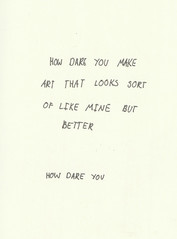 HOW DARE YOU MAKE
ART THAT LOOKS SORT
OF LIKE MINE BUT
BETTER
HOW DARE YOU